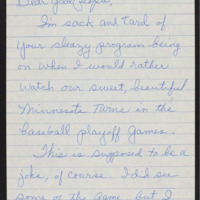 Dear Good People,
I'm sick and tard of
your sleazy program being
on when I would rather
watch our sweet, beautiful
Minnesota Twins in the
baseball playoff games.
This is supposed to be a
joke, of course. I did see
some of the game but I